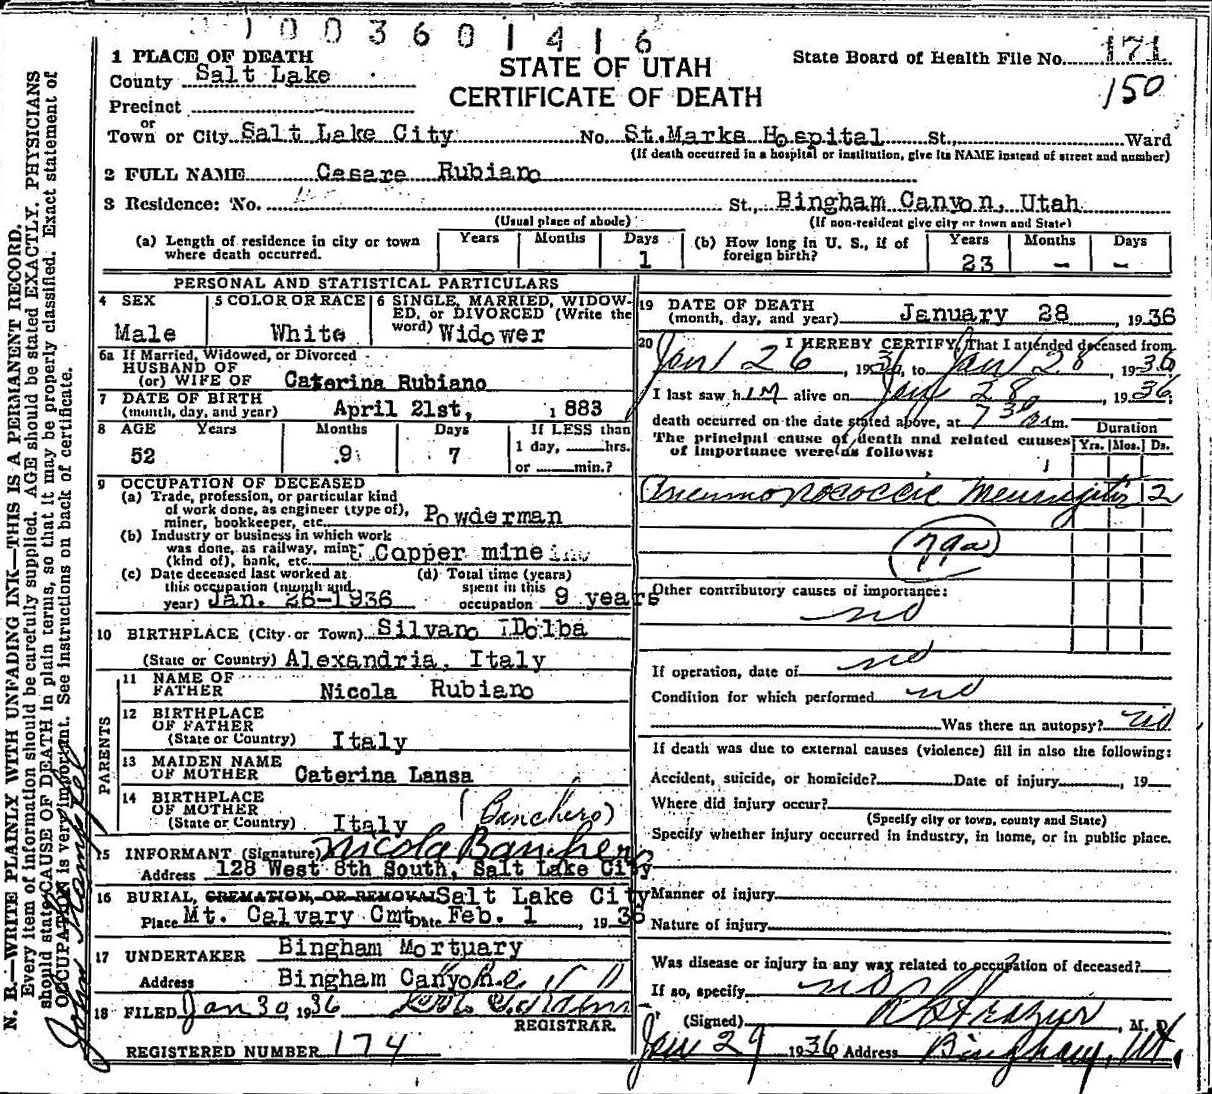 1003601416
1 PLACE OF DEATH
STATE OF UTAH
CERTIFICATE OF DEATH
State Board of Health File No. 171
150
County Salt Lake
Precinct
or
Town or City Salt Lake City No. St.Marks Hospital St., Ward
(If death occurred in a hospital or institution, give its NAME instead of street and number)
2 FULL NAME Cesare Rubiano
3 Residence: No. St., Bingham Canyon, Utah
(Usual place of abode) (If non-resident give city or town and State)
(a) Length of residence in city or town where death occurred. Years Months Days 1
(b) How long in U. S., if of foreign birth? Years 23 Months — Days —
PERSONAL AND STATISTICAL PARTICULARS
4 SEX Male
5 COLOR OR RACE White
6 SINGLE, MARRIED, WIDOWED, or DIVORCED (Write the word) Widower
6a If Married, Widowed, or Divorced
HUSBAND OF
(or) WIFE OF Caterina Rubiano
7 DATE OF BIRTH
(month, day, and year) April 21st, 1883
8 AGE Years 52 Months 9 Days 7 If LESS than 1 day, hrs. or min.?
9 OCCUPATION OF DECEASED
(a) Trade, profession, or particular kind
of work done, as engineer (type of),
miner, bookkeeper, etc. Powderman
(b) Industry or business in which work
was done, as railway, mine
(kind of), bank, etc. Copper mine
(c) Date deceased last worked at
this occupation (month and
year) Jan. 26-1936
(d) Total time (years)
spent in this
occupation 9 years
10 BIRTHPLACE (City or Town) Silvano Dolba
(State or Country) Alexandria, Italy
PARENTS
11 NAME OF
FATHER Nicola Rubiano
12 BIRTHPLACE
OF FATHER
(State or Country) Italy
13 MAIDEN NAME
OF MOTHER Caterina Lansa
14 BIRTHPLACE
OF MOTHER
(State or Country) Italy (Banchero)
15 INFORMANT (Signature) Nicola Banchero
Address 128 West 8th South, Salt Lake City
16 BURIAL, CREMATION, OR REMOVAL Salt Lake City
Place Mt. Calvary Cmt Date Feb. 1, 1936
17 UNDERTAKER Bingham Mortuary
Address Bingham Canyon
18 FILED Jan 30, 1936
REGISTRAR.
REGISTERED NUMBER 174
19 DATE OF DEATH
(month, day, and year) January 28, 1936
20 I HEREBY CERTIFY, That I attended deceased from
Jan 26, 1936, to Jan 28, 1936
I last saw him alive on Jan 28, 1936
death occurred on the date stated above, at 7 30 a.m.
The principal cause of death and related causes
of importance were as follows:
Duration
Yrs. Mos. Ds.
Pneumococcic Meningitis 2
79a
Other contributory causes of importance:
no
If operation, date of no
Condition for which performed no
Was there an autopsy? no
If death was due to external causes (violence) fill in also the following:
Accident, suicide, or homicide? Date of injury , 19
Where did injury occur?
(Specify city or town, county and State)
Specify whether injury occurred in industry, in home, or in public place.
Manner of injury
Nature of injury
Was disease or injury in any way related to occupation of deceased?
If so, specify no
(Signed) Frazier, M. D.
Jan 29 1936 Address Bingham, Ut.
N. B.—WRITE PLAINLY WITH UNFADING INK—THIS IS A PERMANENT RECORD.
Every item of information should be carefully supplied. AGE should be stated EXACTLY. PHYSICIANS
should state CAUSE OF DEATH in plain terms, so that it may be properly classified. Exact statement of
OCCUPATION is very important. See instructions on back of certificate.
John